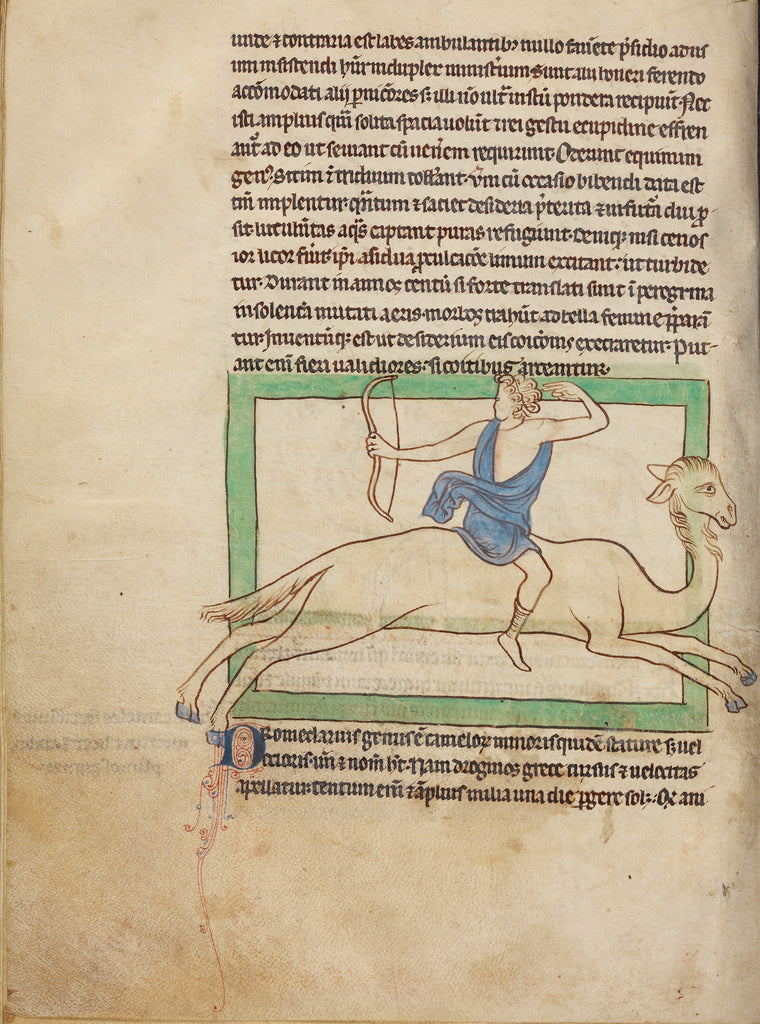 unde ⁊ contraria est labes ambulantibꝫ nullo fauēte p̄sidio ad nis
um insistendi hn̄r in duplex ministīum Sunt alii honeri ferendo
accōmodati alij ꝑnicōres sꝫ illi nō ult̃ instū pondera recipiūt Nec
isti amplius qm̄ solita spacia uolūt ⁊rei gestu ⁊ cupidine effren
ant̃ ad eo ut seuiant cū uenerem requirunt Oderunt equinum
genꝰ Sitim ī triduum tollāt Vm̄ cū occasio bibendi data est
tm̄ implentur quātum ⁊ saciet desideria p̄terita ⁊ in futū diu ꝓ
sit lutulentas aq̄s captant puras refugiunt Deniqꝫ nisi cenos
ior licor fūit ip̄i asidua ꝓculcacōe limum excitant ut turbide
tur Durant in annos centū si forte translati sunt ī peregrina
insolencia mutati aeris morbos trahūt ad bella femine p̄parā
tur Inuentūqꝫ est ut desiderium eis coitꝰ execraretur Put
ant enī fieri ualidiores si coitibus arceantur
Dromedarius genus ē cameloꝝ minoris quidē stature sꝫ uel
ocioris un̄ ⁊ nom̄ ht̄ Nam dromos grece cursus ⁊ uelocitas
apellatur centum enī ⁊ āplius milia una die ꝑgere solꝫ Qꝫ ani